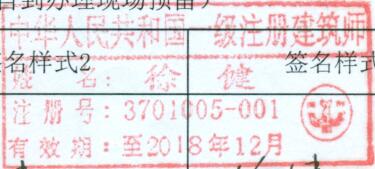 自到办理现场预留）
中华人民共和国一级注册建筑师
签名样式2
签名样式
姓名：徐健
注册号：3701005-001
有效期：至2018年12月